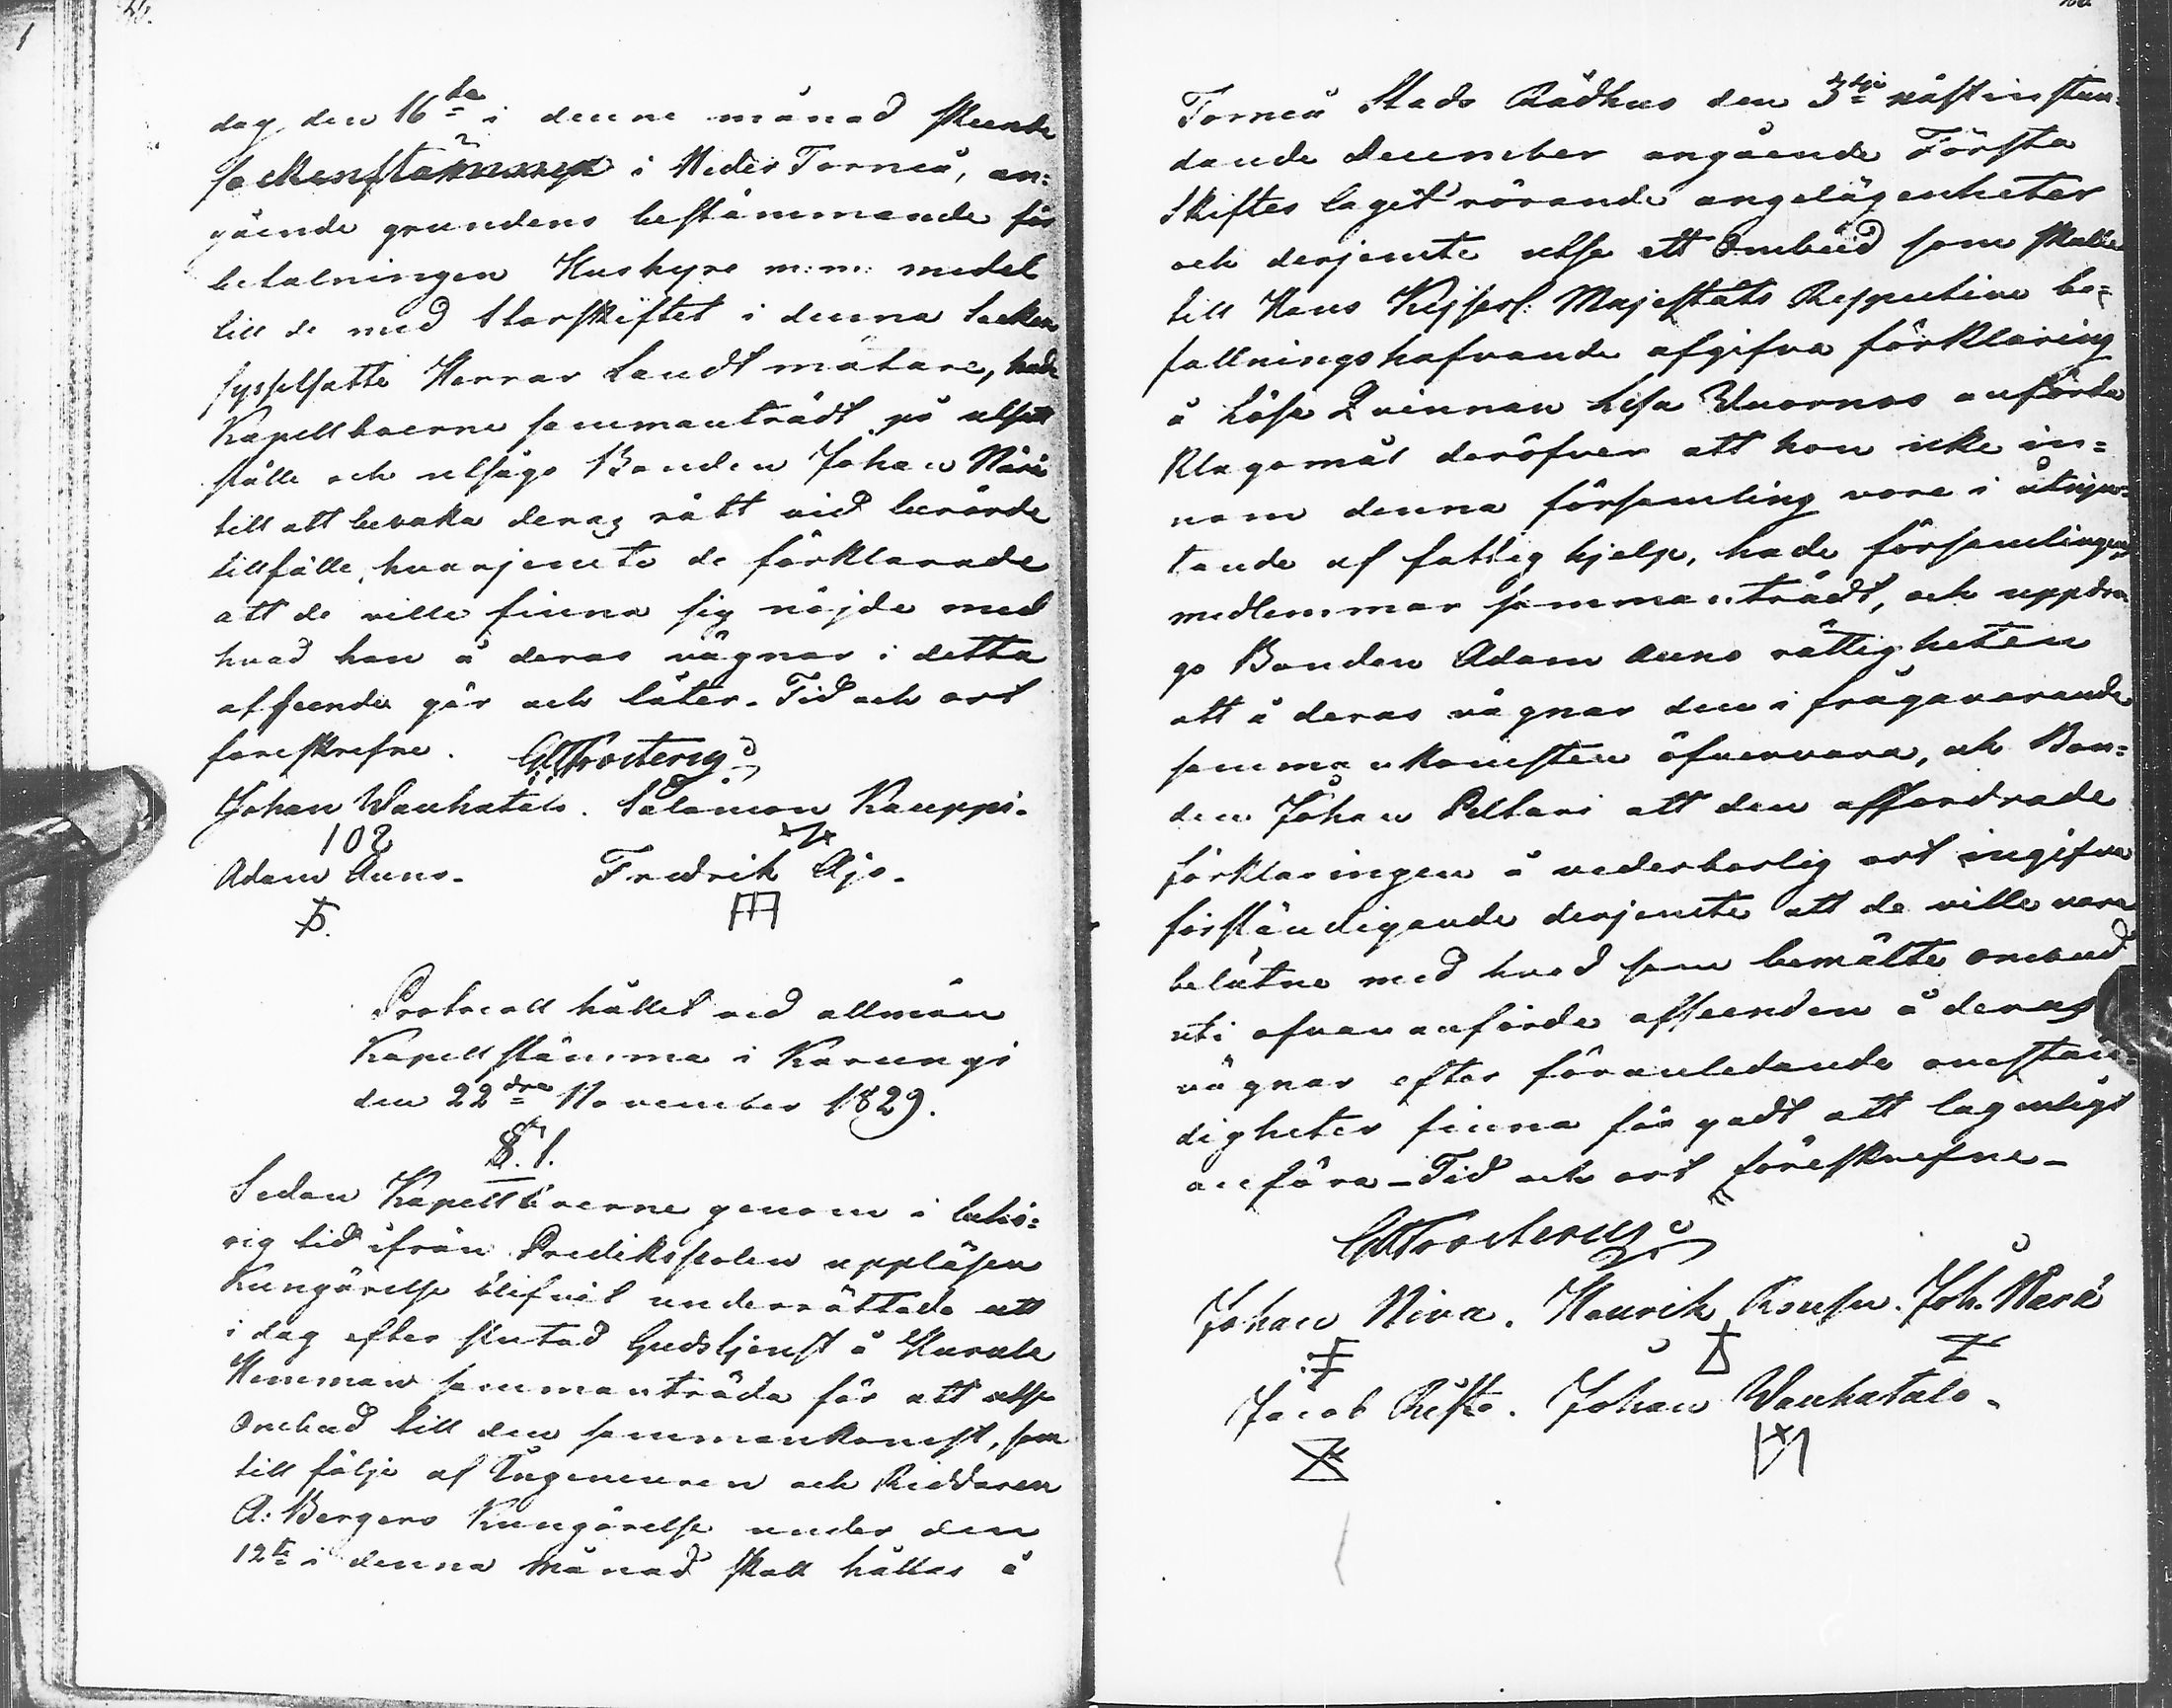 dag den 16de i denne månad skeende
sockenstämman i Neder Torneå, an=
gående grundens bestämmande för
betalningen Hushyre m:m: medel
till de med Storskiftet i denna Socken
sysselsatte Herrar Landtmätare, hade
Kapellboerne sammanträdt på utsatt
ställe och utsågo Bonden Johan Närä
till att bevaka deras rätt vid berörde
tillfälle, hvarjemte de förklarade
att de ville finna sig nöjde med
hvad han å deras vägnar i detta
afseende gör och låter. Tid och ort
föreskrefne.
Johan Wanhatalo. Salomon Kauppi.
Adam Auno. Fredrik Ajo.
Protocoll hållet vid allmän
Kapellstämma i Karungi
den 22dra November 1829.
§. 1.
Sedan Kapellboerne genom i behö=
rig tid ifrån Predikstolen uppläsen
Kungörelse blifvit underrättade att
i dag efter slutad Gudstjenst å
Hemman sammanträda för att utse
Ombud till den sammankomst, som
till följe af Ingenieuren och Riddaren
A: Bergers Kungörelse under den
12te i denna månad skall hållas å
Torneå Stads Rådhus den 3dje nästinstun=
dande December angående Första
Skiftes laget rörande angelägenheter
och derjemte utse ett Ombud som skulle
till Hans Kejserl: Majestäts Respective be=
fallningshafvande afgifva förklaring
å Lösa Qvinnan Lisa anförda
Klagomål deröfver att hon icke in=
nom denna församling vore i åtnju=
tande af fattig hjelp, hade församlingens
medlemmar sammanträdt, och uppdra=
go Bonden Adam Auno rättigheten
att å deras vägnar den i frågavarande
sammankomsten öfvervara, och Bon=
den Johan Peltari att den affordrade
förklaringen å vederbörlig ort ingifva
förständigande derjemte att de ville vara
belåtne med hvad som bemälte ombud
uti ofvan anförde afseenden å deras
vägnar efter föranledande omstän=
digheter finna för godt att lagenligt
anföra - Tid och ort föreskrefne -
Johan Niva. Henrik Joh. Närä
Jacob Risto. Johan Wanhatalo.